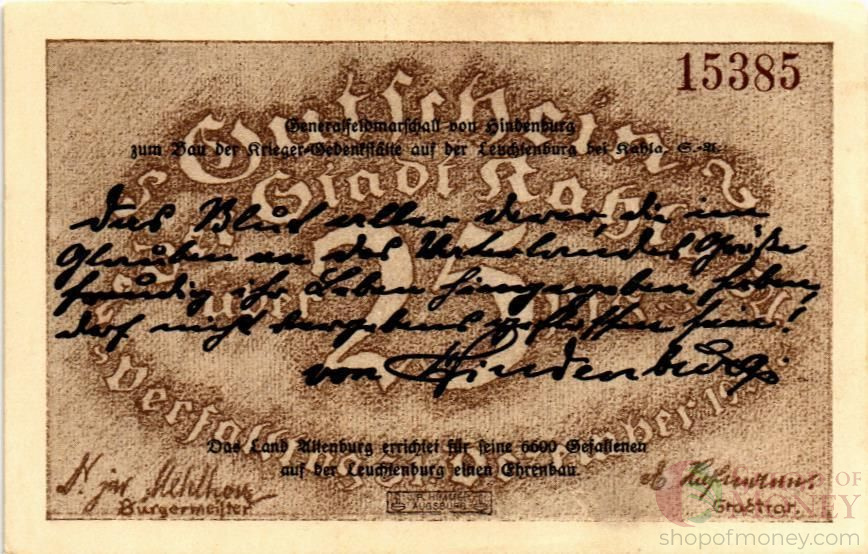 15385
Gutschein
Generalfeldmarschall von Hindenburg
zum Bau der Krieger-Gedenkstätte auf der Leuchtenburg bei Kahla, S.-A.
der Stadt Kahla
Das Blut aller derer, die im
Glauben an des Vaterlandes Größe
freudig ihr Leben hingegeben haben,
darf nicht vergebens geflossen sein!
von Hindenburg.
über 25
Das Land Altenburg errichtet für seine 6600 Gefallenen
auf der Leuchtenburg einen Ehrenbau.
Bürgermeister
HIMMER
AUGSBURG
Stadtrat.
OF
MONEY
shopofmoney.com